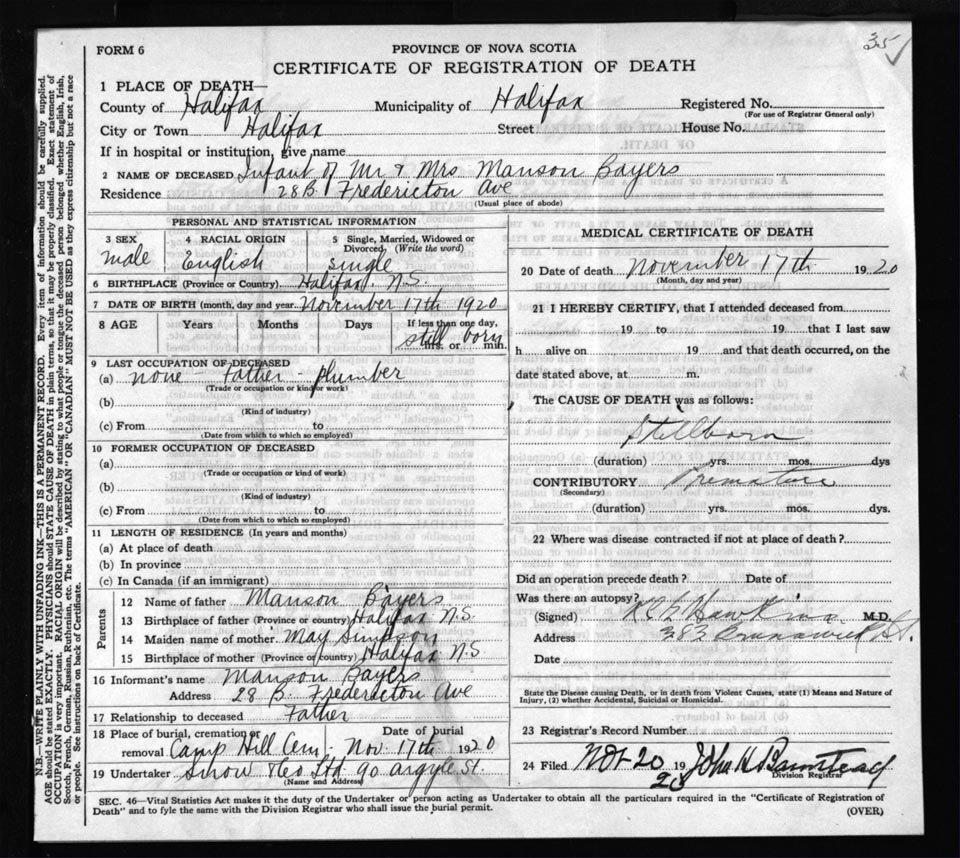 35
FORM 6
PROVINCE OF NOVA SCOTIA
CERTIFICATE OF REGISTRATION OF DEATH
1 PLACE OF DEATH—
County of Halifax Municipality of Halifax Registered No.
(For use of Registrar General only)
City or Town Halifax Street House No.
If in hospital or institution, give name
2 NAME OF DECEASED Infant of Mr & Mrs Manson Bayers
Residence 28 B Fredericton Ave
(Usual place of abode)
PERSONAL AND STATISTICAL INFORMATION
3 SEX 4 RACIAL ORIGIN 5 Single, Married, Widowed or Divorced, (Write the word)
male English Single
6 BIRTHPLACE (Province or Country). Halifax. N.S.
7 DATE OF BIRTH (month, day and year. November 17th 1920
8 AGE Years Months Days If less than one day,
still born
hrs. or min.
9 LAST OCCUPATION OF DECEASED
(a) none Father plumber
(Trade or occupation or kind of work)
(b)
(Kind of industry)
(c) From to
(Date from which to which so employed)
10 FORMER OCCUPATION OF DECEASED
(a)
(Trade or occupation or kind of work)
(b)
(Kind of industry)
(c) From to
(Date from which to which so employed)
11 LENGTH OF RESIDENCE (In years and months)
(a) At place of death
(b) In province
(c) In Canada (if an immigrant)
Parents
12 Name of father Manson Bayers
13 Birthplace of father (Province or country) Halifax N.S.
14 Maiden name of mother. May Simpson
15 Birthplace of mother (Province or country) Halifax N.S
16 Informant's name Manson Bayers
Address 28 B. Fredericton Ave
17 Relationship to deceased Father
18 Place of burial, cremation or Date of burial
removal Camp Hill Cem. Nov. 17th 1920
19 Undertaker Snow & Co Ltd 90 Argyle St.
(Name and Address)
MEDICAL CERTIFICATE OF DEATH
20 Date of death November 17th 1920
(Month, day and year)
21 I HEREBY CERTIFY, that I attended deceased from
19 to 19 that I last saw
h alive on 19 and that death occurred, on the
date stated above, at m.
The CAUSE OF DEATH was as follows:
Stillborn
(duration) yrs. mos. dys
CONTRIBUTORY Premature
(Secondary)
(duration) yrs. mos. dys.
22 Where was disease contracted if not at place of death?
Did an operation precede death? Date of
Was there an autopsy?
(Signed) Hawkins M.D.
Address 383 Brunswick St.
Date
State the Disease causing Death, or in death from Violent Causes, state (1) Means and Nature of
Injury, (2) whether Accidental, Suicidal or Homicidal.
23 Registrar's Record Number
24 Filed NOV 20 19 20 John H Barnstead
Division Registrar
SEC. 46—Vital Statistics Act makes it the duty of the Undertaker or person acting as Undertaker to obtain all the particulars required in the "Certificate of Registration of
Death" and to fyle the same with the Division Registrar who shall issue the burial permit.
(OVER)
N.B.—WRITE PLAINLY WITH UNFADING INK—THIS IS A PERMANENT RECORD. Every item of information should be carefully supplied.
AGE should be stated EXACTLY. PHYSICIANS should STATE CAUSE OF DEATH in plain terms, so that it may be properly classified. Exact statement of
OCCUPATION is very important. RACIAL ORIGIN will be described by stating to what people or tongue the deceased person belonged whether English, Irish,
Scotch, French, German, Russian, Ruthenian, etc. The terms "AMERICAN" OR "CANADIAN" MUST NOT BE USED as they express citizenship but not a race
or people. See instructions on back of Certificate.